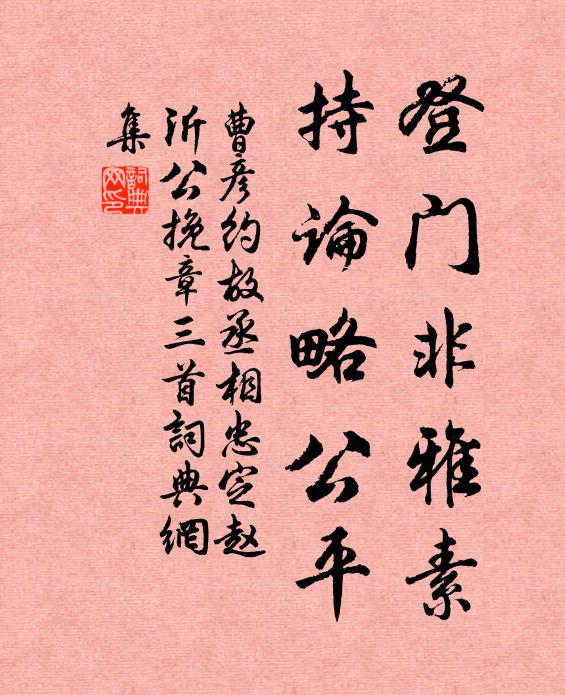 登门非雅素
持论略公平
曹彦约故丞相忠定赵
沂公挽章三首詞典網
集
詞典
网印